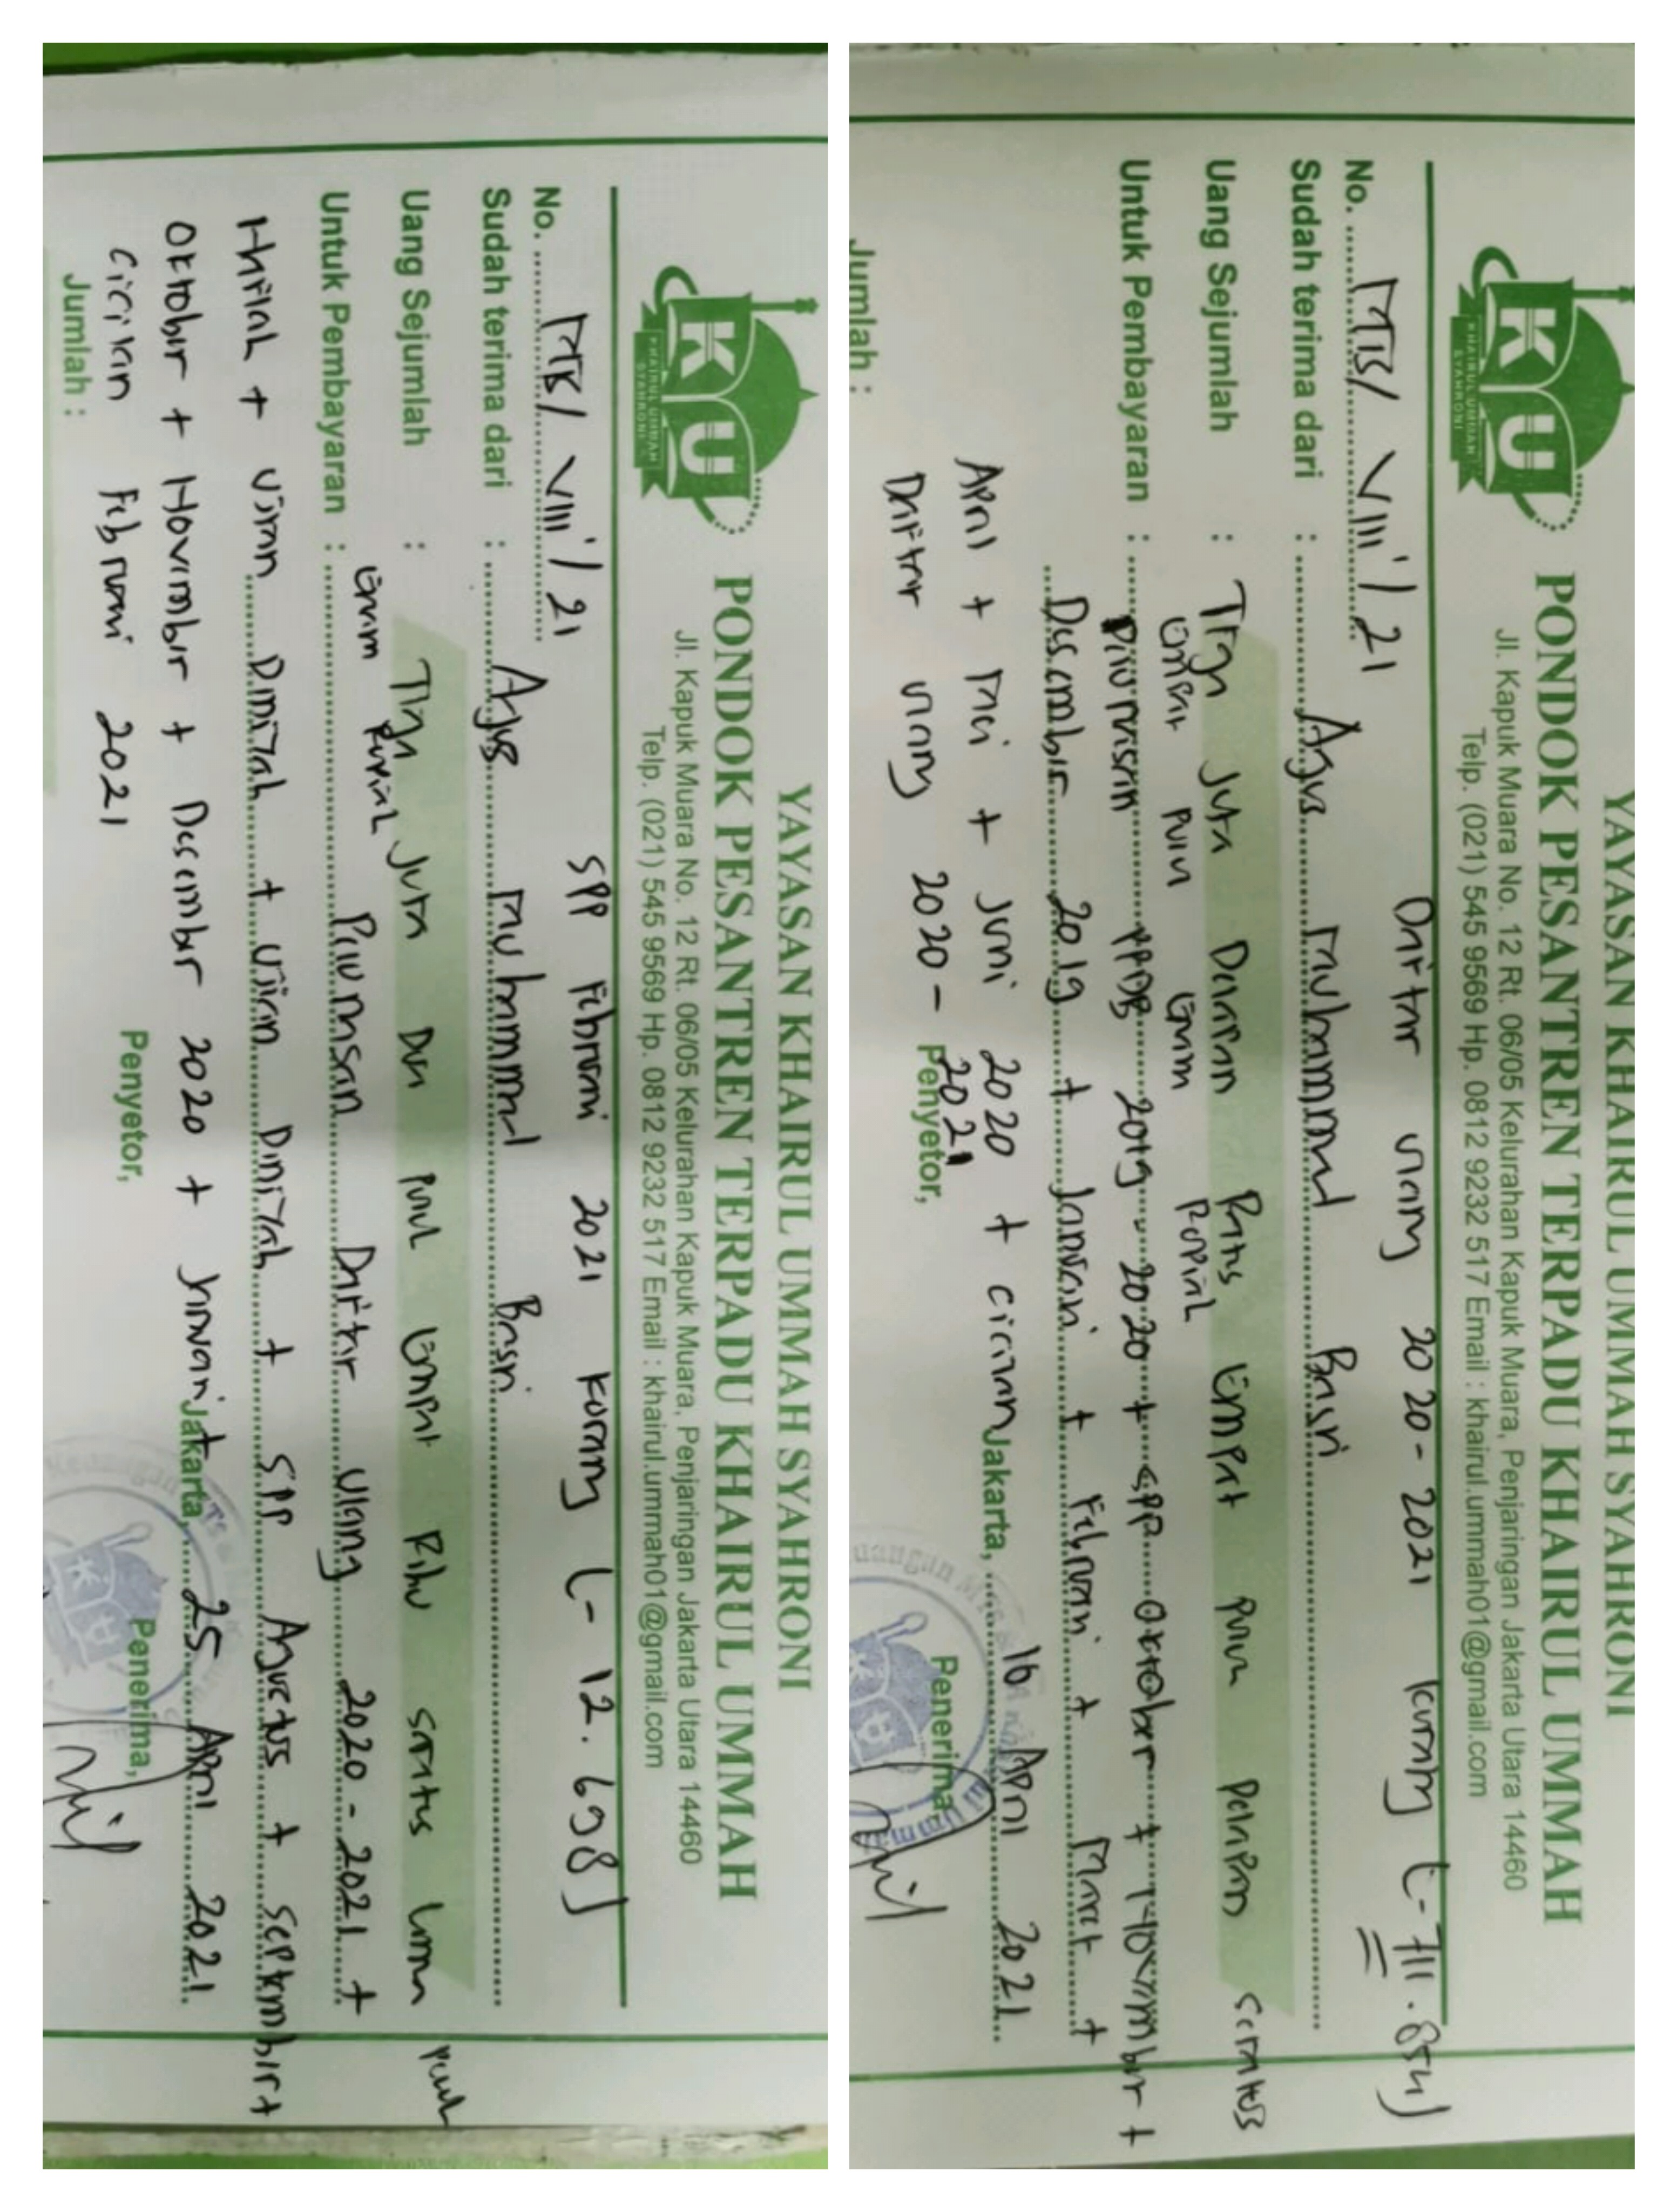 YAYASAN KHAIRUL UMMAH SYAHRONI
PONDOK PESANTREN TERPADU KHAIRUL UMMAH
Jl. Kapuk Muara No. 12 Rt. 06/05 Kelurahan Kapuk Muara, Penjaringan Jakarta Utara 14460
Telp. (021) 545 9569 Hp. 0812 9232 517 Email : khairul.ummah01@gmail.com
KU
KHAIRUL UMMAH
SYAHRONI
SPP Februari 2021 kurang (- 12.698)
No. MTS/ VIII / 21
Sudah terima dari : Agus Muhammad Basri
Uang Sejumlah : Tiga Juta Dua puluh Empat Ribu seratus lima puluh
Enam Rupiah
Untuk Pembayaran : Pelunasan Daftar Ulang 2020 - 2021 +
Hafalah + Ujian Diniyah + Ujian Diniyah + SPP Agustus + September +
Oktober + November + Desember 2020 + Januari +
cicilan Februari 2021
Jakarta, 25 April 2021
Jumlah :
Penyetor,
Penerima,
YAYASAN KHAIRUL UMMAH SYAHRONI
PONDOK PESANTREN TERPADU KHAIRUL UMMAH
Jl. Kapuk Muara No. 12 Rt. 06/05 Kelurahan Kapuk Muara, Penjaringan Jakarta Utara 14460
Telp. (021) 545 9569 Hp. 0812 9232 517 Email : khairul.ummah01@gmail.com
KU
KHAIRUL UMMAH
SYAHRONI
Daftar ulang 2020 - 2021 kurang (- 711.854)
No. MTS/ VIII / 21
Sudah terima dari : Agus Muhammad Basri
Uang Sejumlah : Tiga Juta Delapan Ratus Empat puluh Delapan seratus
Empat puluh Enam Rupiah
Untuk Pembayaran : Pelunasan PPDB 2019 - 2020 + SPP Oktober + November +
Desember 2019 + Januari + Februari + Maret +
April + Mei + Juni 2020 + cicilan
Daftar ulang 2020 - 2021
Jakarta, 16 April 2021
Jumlah :
Penyetor,
Penerima,